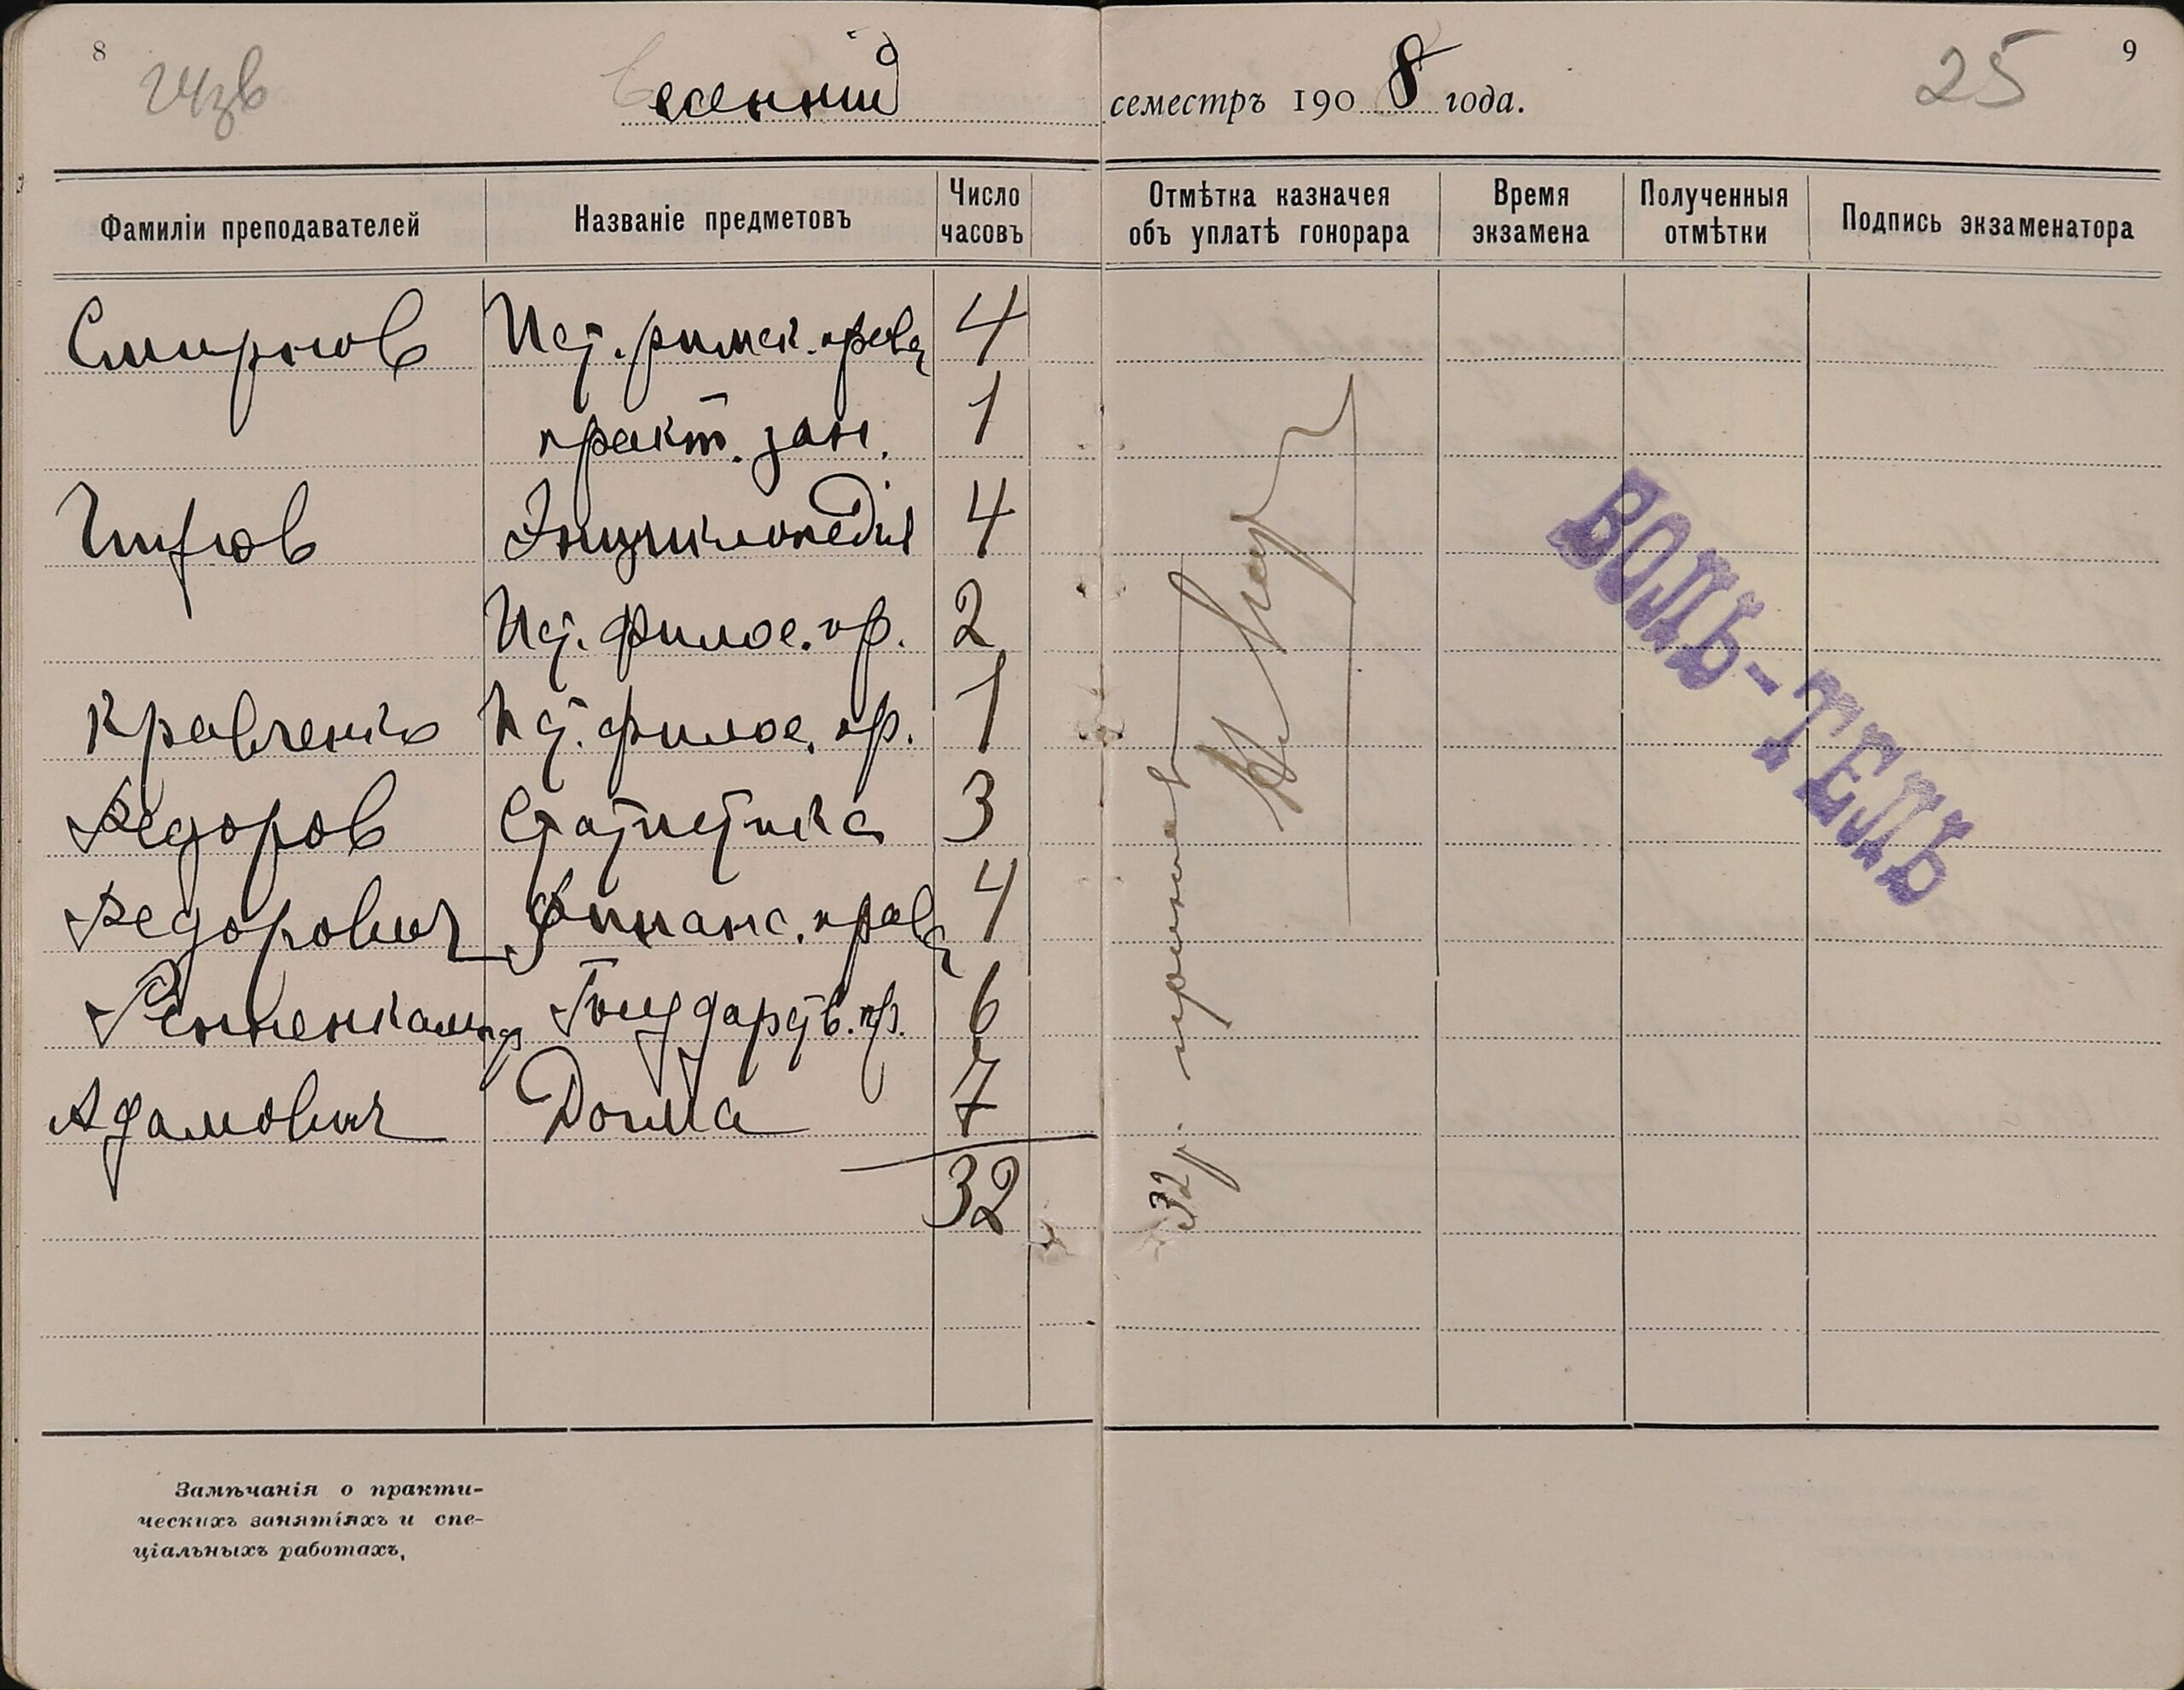 8
24зв
Весенній семестръ 1908 года.
25
9
Фамиліи преподавателей Названіе предметовъ Число часовъ Отмѣтка казначея объ уплатѣ гонорара Время экзамена Полученныя отмѣтки Подпись экзаменатора
Смирнов Ист. римск. права 4
практ. зан. 1
Чижов Энциклопедія 4
Ист. филос. пр. 2
Кравченко Ист. филос. пр. 1
Федоров Статистика 3
Федорович Финанс. права 4
Ренненкампф Государств. пр. 6
Адамович Догма 7
32
32 р.
ВОЛЬ-ТЕЛЬ
Замѣчанія о практи-
ческихъ занятіяхъ и спе-
ціальныхъ работахъ,